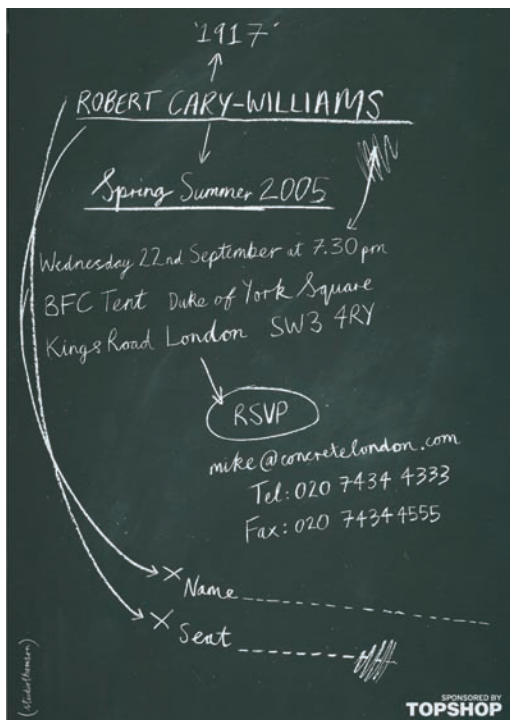 '1917'
ROBERT CARY-WILLIAMS
Spring Summer 2005
Wednesday 22nd September at 7.30pm
BFC Tent Duke of York Square
Kings Road London SW3 4RY
RSVP
mike@concretelondon.com
Tel: 020 7434 4333
Fax: 020 7434 4555
Name
Seat
(studiothomson)
SPONSORED BY
TOPSHOP